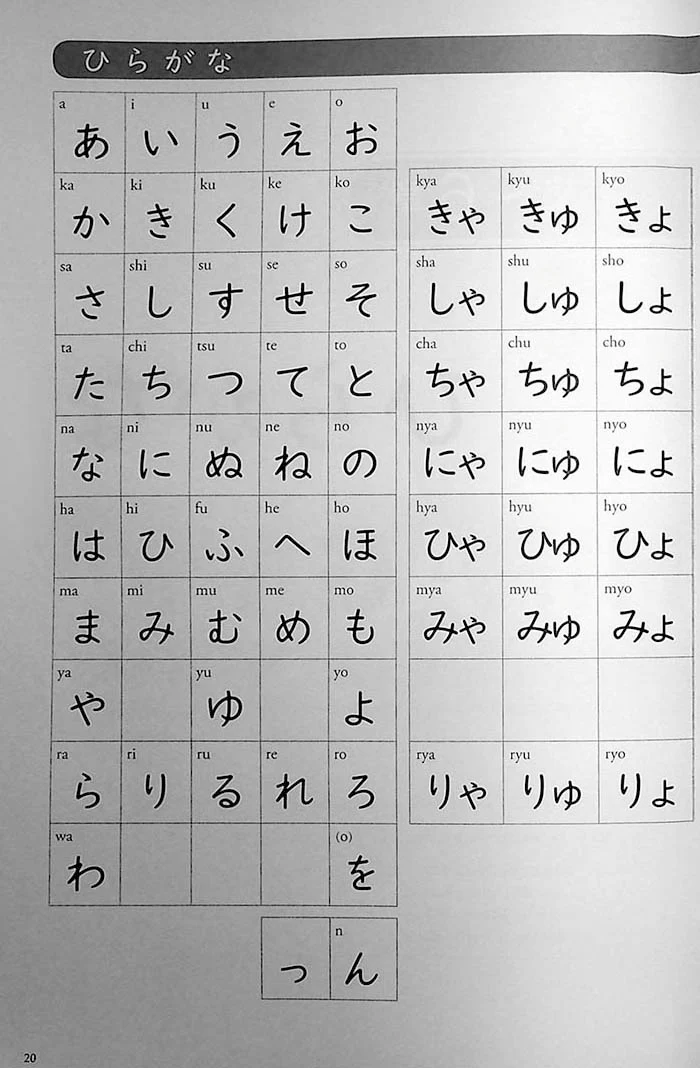 ひらがな
a i u e o
あ い う え お
ka ki ku ke ko kya kyu kyo
か き く け こ きゃ きゅ きょ
sa shi su se so sha shu sho
さ し す せ そ しゃ しゅ しょ
ta chi tsu te to cha chu cho
た ち つ て と ちゃ ちゅ ちょ
na ni nu ne no nya nyu nyo
な に ぬ ね の にゃ にゅ にょ
ha hi fu he ho hya hyu hyo
は ひ ふ へ ほ ひゃ ひゅ ひょ
ma mi mu me mo mya myu myo
ま み む め も みゃ みゅ みょ
ya yu yo
や ゆ よ
ra ri ru re ro rya ryu ryo
ら り る れ ろ りゃ りゅ りょ
wa (o)
わ を
n
っ ん
20